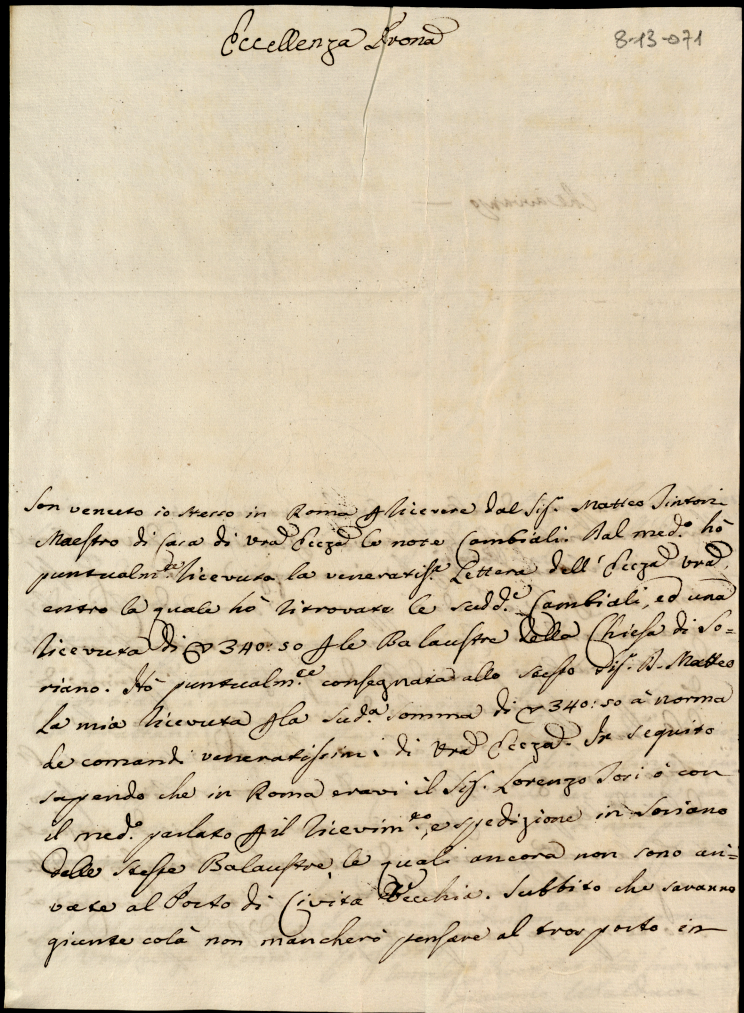 Eccellenza Prona
8-13-071
Son venuto io stesso in Roma p ricevere dal Sig. Matteo Tintori
Maestro di Casa di Vrã Eccza le note Cambiali. Dal med.o hò
puntualm.te ricevuta la veneratiss.a Lettera dell' Eccza Vrã,
entro la quale hò ritrovate le sudd.e Cambiali, ed una
ricevuta di 340:50 p le Balaustre della Chiesa di So=
riano. Hò puntualm.te consegnata allo stesso Sig. D. Matteo
la mia ricevuta p la sud.a somma di 340:50 à norma
de comandi veneratissimi di Vrã Eccza. In seguito
sapendo che in Roma eravi il Sig. Lorenzo Tosi ò con
il med.o parlato p il ricevim.to, e spedizione in Soriano
delle stesse Balaustre, le quali ancora non sono ari=
vate al Porto di Civita Vecchia. Subbito che saranno
giunte colà non mancherò pensare al trosporto in